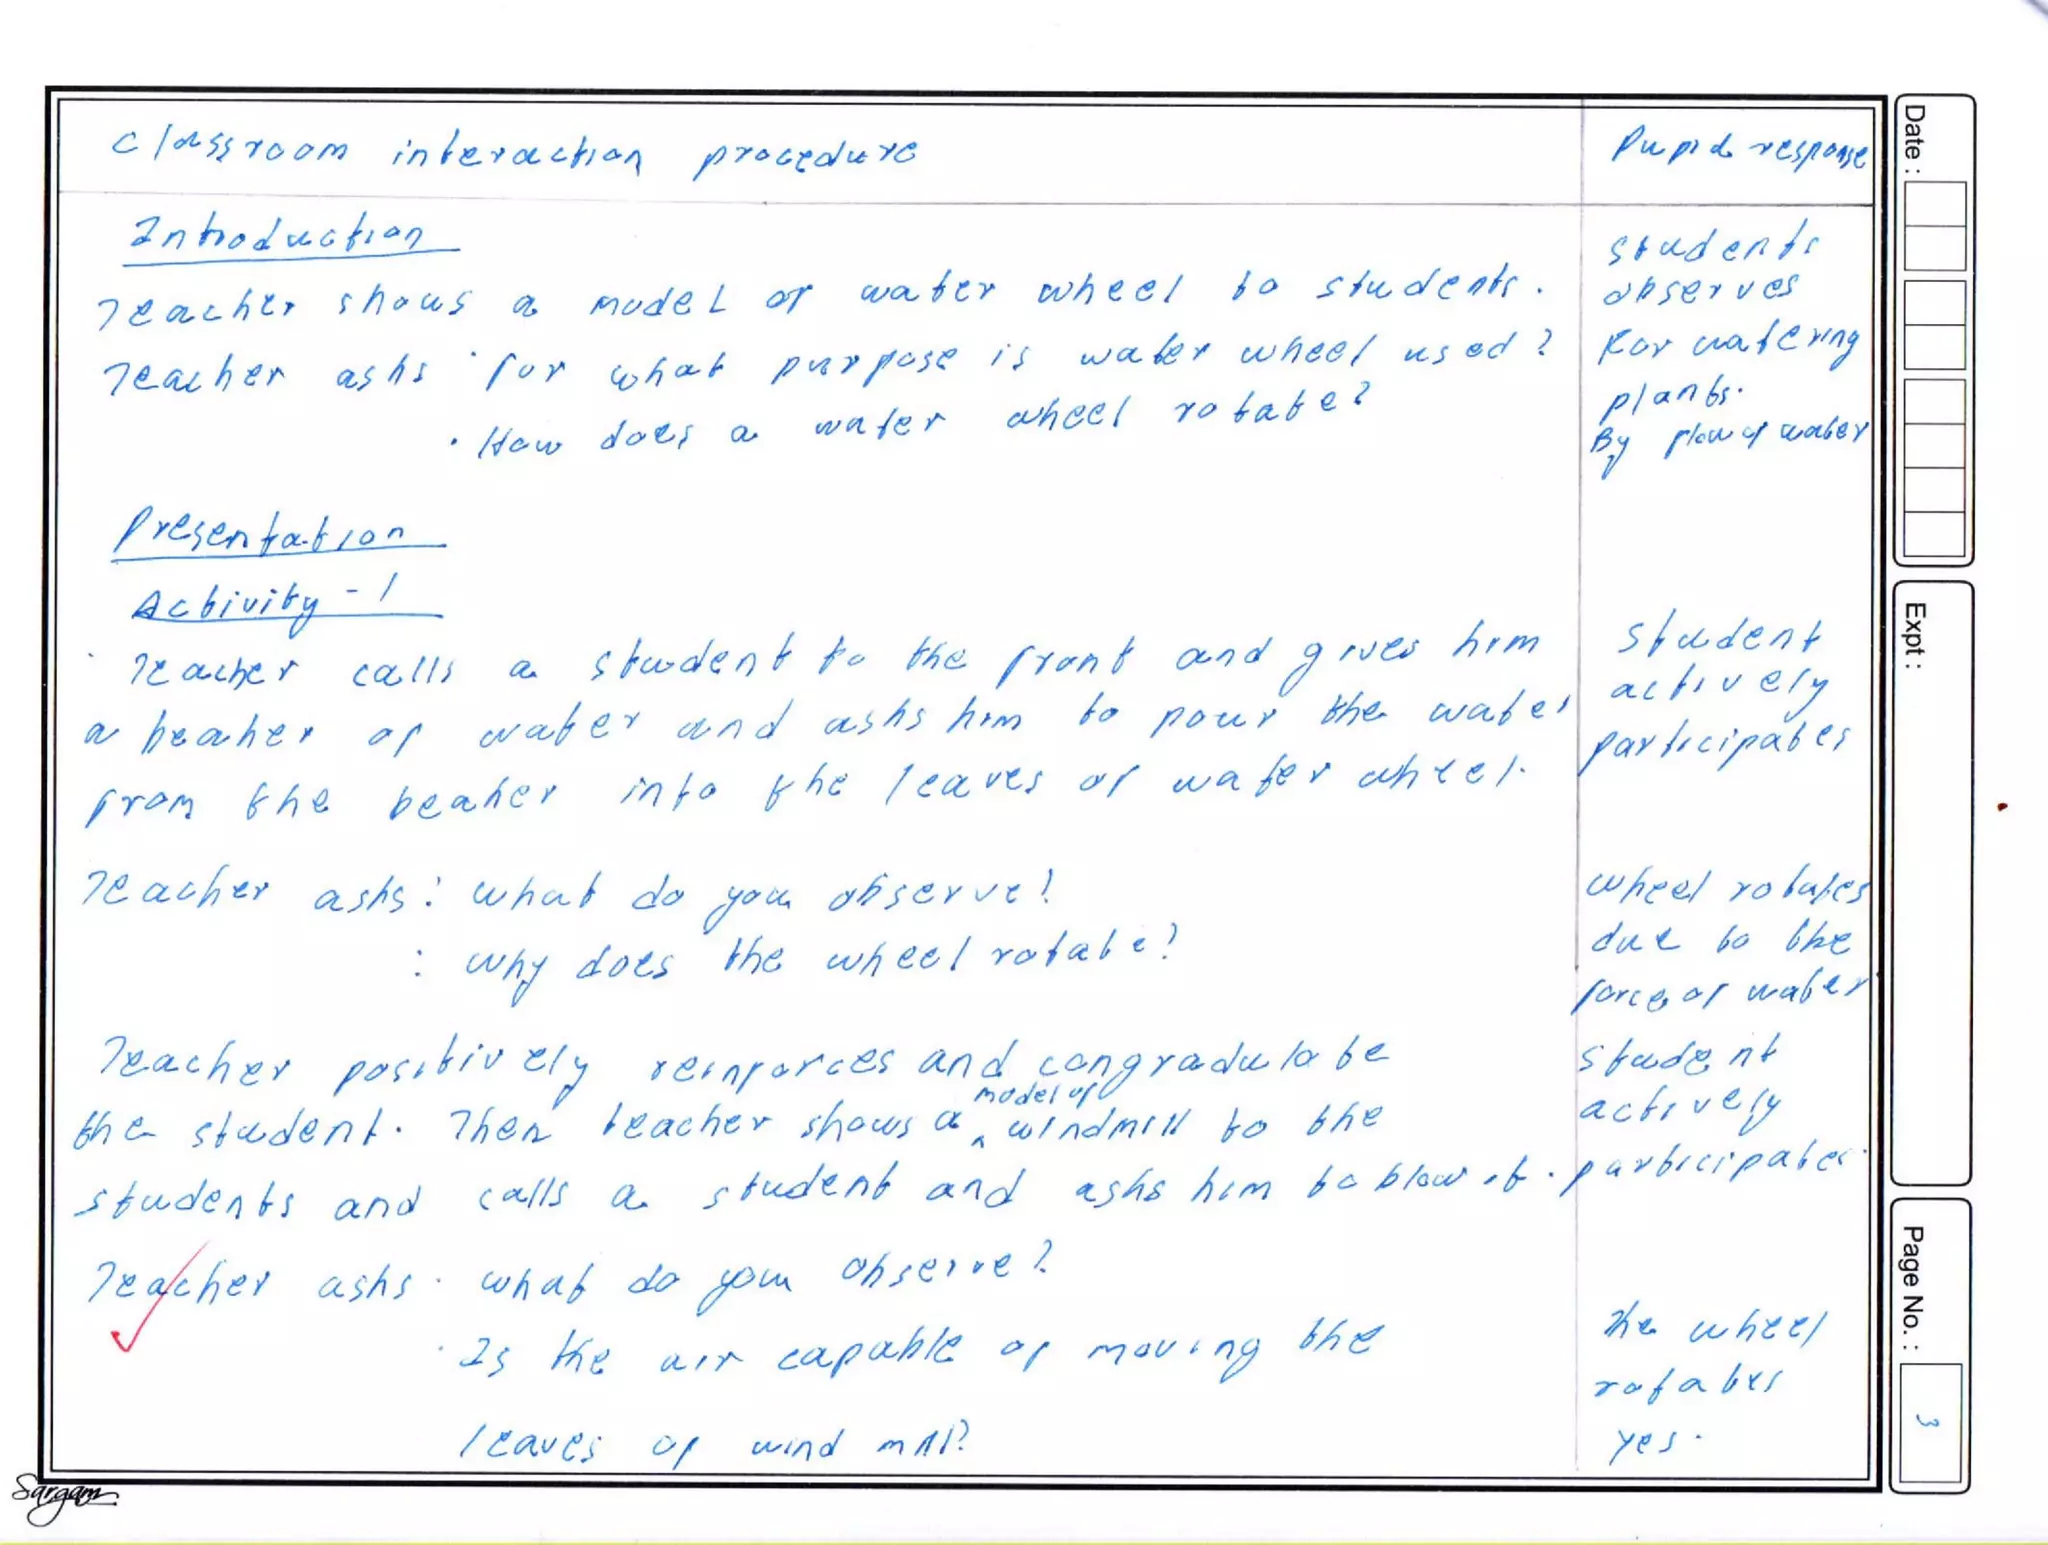 Classroom interaction procedure
Pupil response
Introduction
Teacher shows a model of water wheel to students.
Teacher asks · for what purpose is water wheel used?
· How does a water wheel rotate?
students
observes
For watering
plants.
By flow of water
Presentation
Activity - 1
Teacher calls a student to the front and gives him
a beaker of water and asks him to pour the water
from the beaker into the leaves of water wheel.
student
actively
participates
Teacher asks : what do you observe?
: why does the wheel rotate?
wheel rotates
due to the
force of water
Teacher positively reinforces and congradulate
the student. Then teacher shows a model of windmill to the
students and calls a student and asks him to blow it.
student
actively
participates.
Teacher asks · what do you observe?
· Is the air capable of moving the
leaves of wind mill?
The wheel
rotates
yes.
Date :
Expt :
Page No. : 3
Sargam